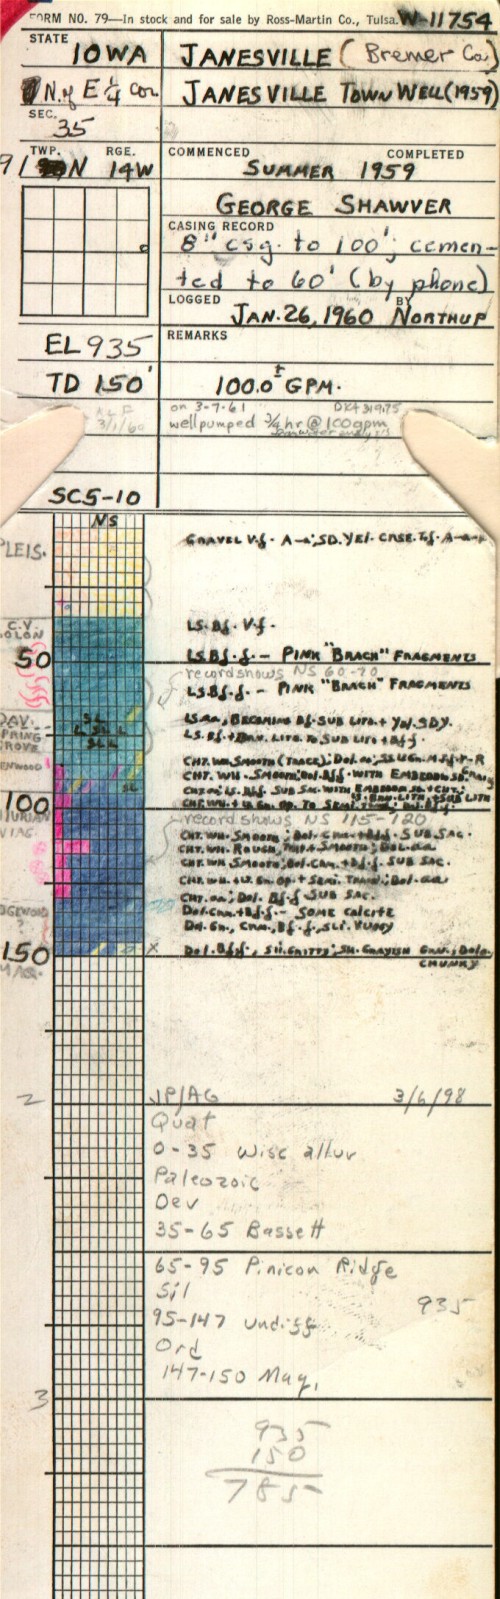 FORM NO. 79—In stock and for sale by Ross-Martin Co., Tulsa. W-11754
STATE
IOWA
JANESVILLE (Bremer Co.)
N. of E 1/4 cor.
JANESVILLE TOWN WELL (1959)
SEC.
35
TWP. RGE.
91 N 14W
COMMENCED COMPLETED
SUMMER 1959
GEORGE SHAWVER
CASING RECORD
8" csg. to 100'; cemen-
ted to 60' (by phone)
LOGGED BY
JAN. 26, 1960 NORTHUP
EL 935
REMARKS
TD 150'
100.0± GPM.
3/1/60
on 3-7-61
well pumped 3/4 hr @ 100gpm
SC5-10
NS
PLEIS.
GRAVEL V.f.
C.V.
SOLON
LS. Bf. V-f.
50
LS. Bf.-f. - PINK "BRACH" FRAGMENTS
record shows NS 60-70
LS. Bf.-f. - PINK "BRACH" FRAGMENTS
DAV.
PRING
ROVE
LS. aa, BECOMING Bf. SUB LITO. + Yel. SDY.
LS. Bf. + BRN. LITO. TO SUB LITO + Bff.
ENWOOD
CHT. WH. SMOOTH (TRACE); Dol. aa;
CHT. WH. SMOOTH; Dol. Bff. WITH EMBEDDED
100
record shows NS 115-120
URIAN
CHT. WH. SMOOTH; Dol. Crm. + Bff. SUB SAC.
CHT. WH. ROUGH, + SMOOTH; Dol. aa
CHT. WH. SMOOTH; Dol. Crm. + Bf.f. SUB SAC.
CHT. WH. + Lt. Gn. Op. + SEMI. TRANS.; Dol. aa
CHT. aa; Dol. Bf.f SUB SAC.
Dol. Crm. + Bf.f. - SOME CALCITE
EDGEWOOD
?
Dol. Gn., Crm., Bf.f., SLI. VUGGY
150
X
Dol. Bff., SLI. GRITTY; SH. GRAYISH GRN.; Dol. aa
CHUNKY
MAQ.
2
JP/AG 3/6/98
Quat
0-35 Wisc alluv
Paleozoic
Dev
35-65 Bassett
65-95 Pinicon Ridge
Sil
935
95-147 undiff
Ord
147-150 Maq.
3
935
150
785